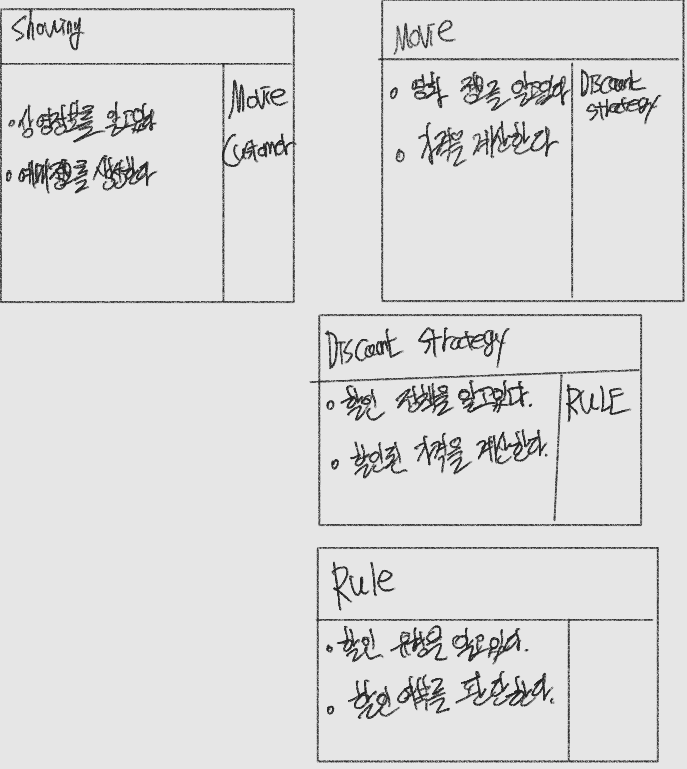 Showing
• 상영정보를 알고있다
• 예매정보를 생성한다
Movie
Customer
Movie
• 영화 정보를 알고있다
• 가격을 계산한다
Discount
strategy
Discount strategy
• 할인 정책을 알고있다.
• 할인된 가격을 계산한다.
RULE
Rule
• 할인 유형을 알고있다.
• 할인여부를 판단한다.